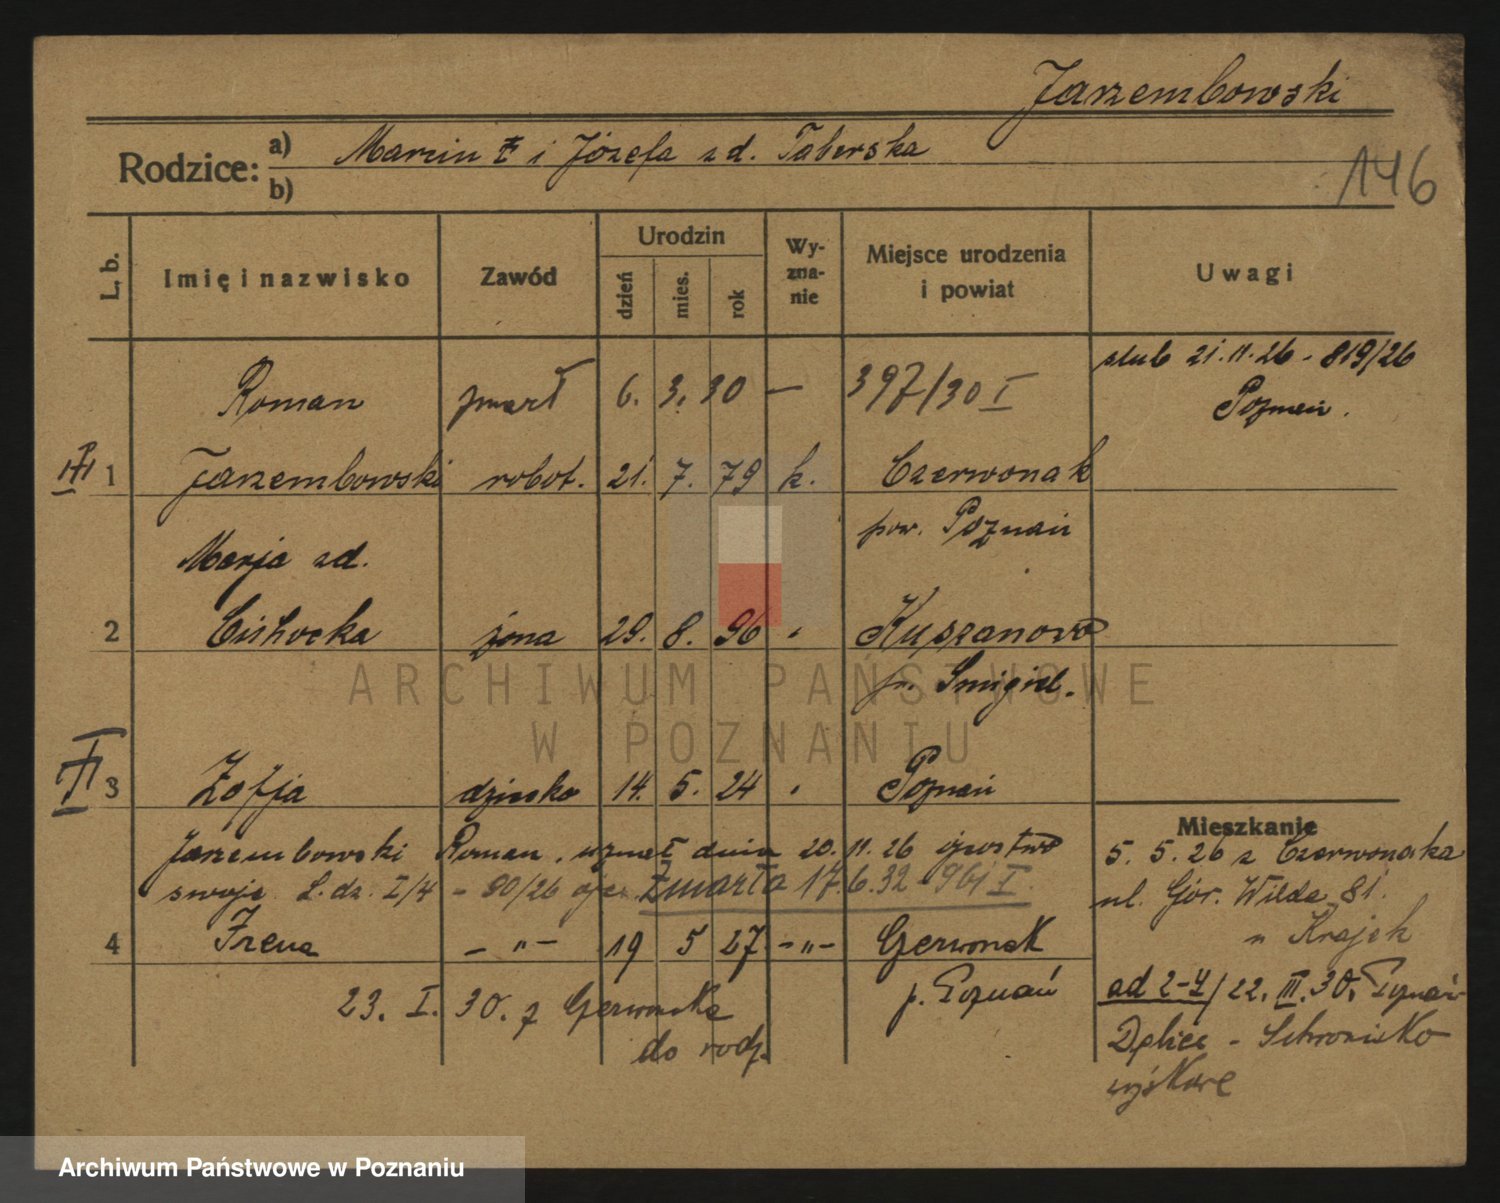 Jarzembowski
Rodzice: a) Marcin i Józefa z d. Taberska
b)
146
L. b. Imię i nazwisko Zawód Urodzin dzień mies. rok Wyznanie Miejsce urodzenia i powiat Uwagi
ślub 21.11.26 - 819/26
Poznań.
Roman zmarł 6. 3. 30 — 397/30 I
1 Jarzembowski robot. 21. 7. 79 k. Czerwonak
pow. Poznań
Marja zd.
2 Cichocka żona 29. 8. 96 " Kuszanowo
p. Smigiel.
3 Zofja dziecko 14. 5. 24 " Poznań
Mieszkanie
Jarzembowski Roman, uznał dnia 20. 11. 26 ojcostwo
swoje L. dz. I/4 - 80/26 zmarła 17.6.32 - 961 I.
5. 5. 26 z Czerwonaka
ul. Gór. Wilda 81
u Krajek
4 Irena - " - 19 5 27 - " - Czerwonak
p. Poznań
23. I. 30. z Czerwonaka
do rodz.
od 2-4/ 22. III. 30. Poznań
Dębiec - Schronisko